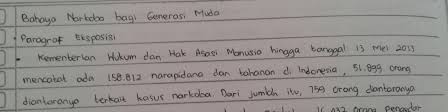 Bahaya Narkoba bagi Generasi Muda
• Paragraf Eksposisi
• Kementerian Hukum dan Hak Asasi Manusia hingga tanggal 13 Mei 2013
mencatat ada 158.812 narapidana dan tahanan di Indonesia, 51.899 orang
diantaranya terkait kasus narkoba. Dari jumlah itu, 759 orang diantaranya
orang pengedar